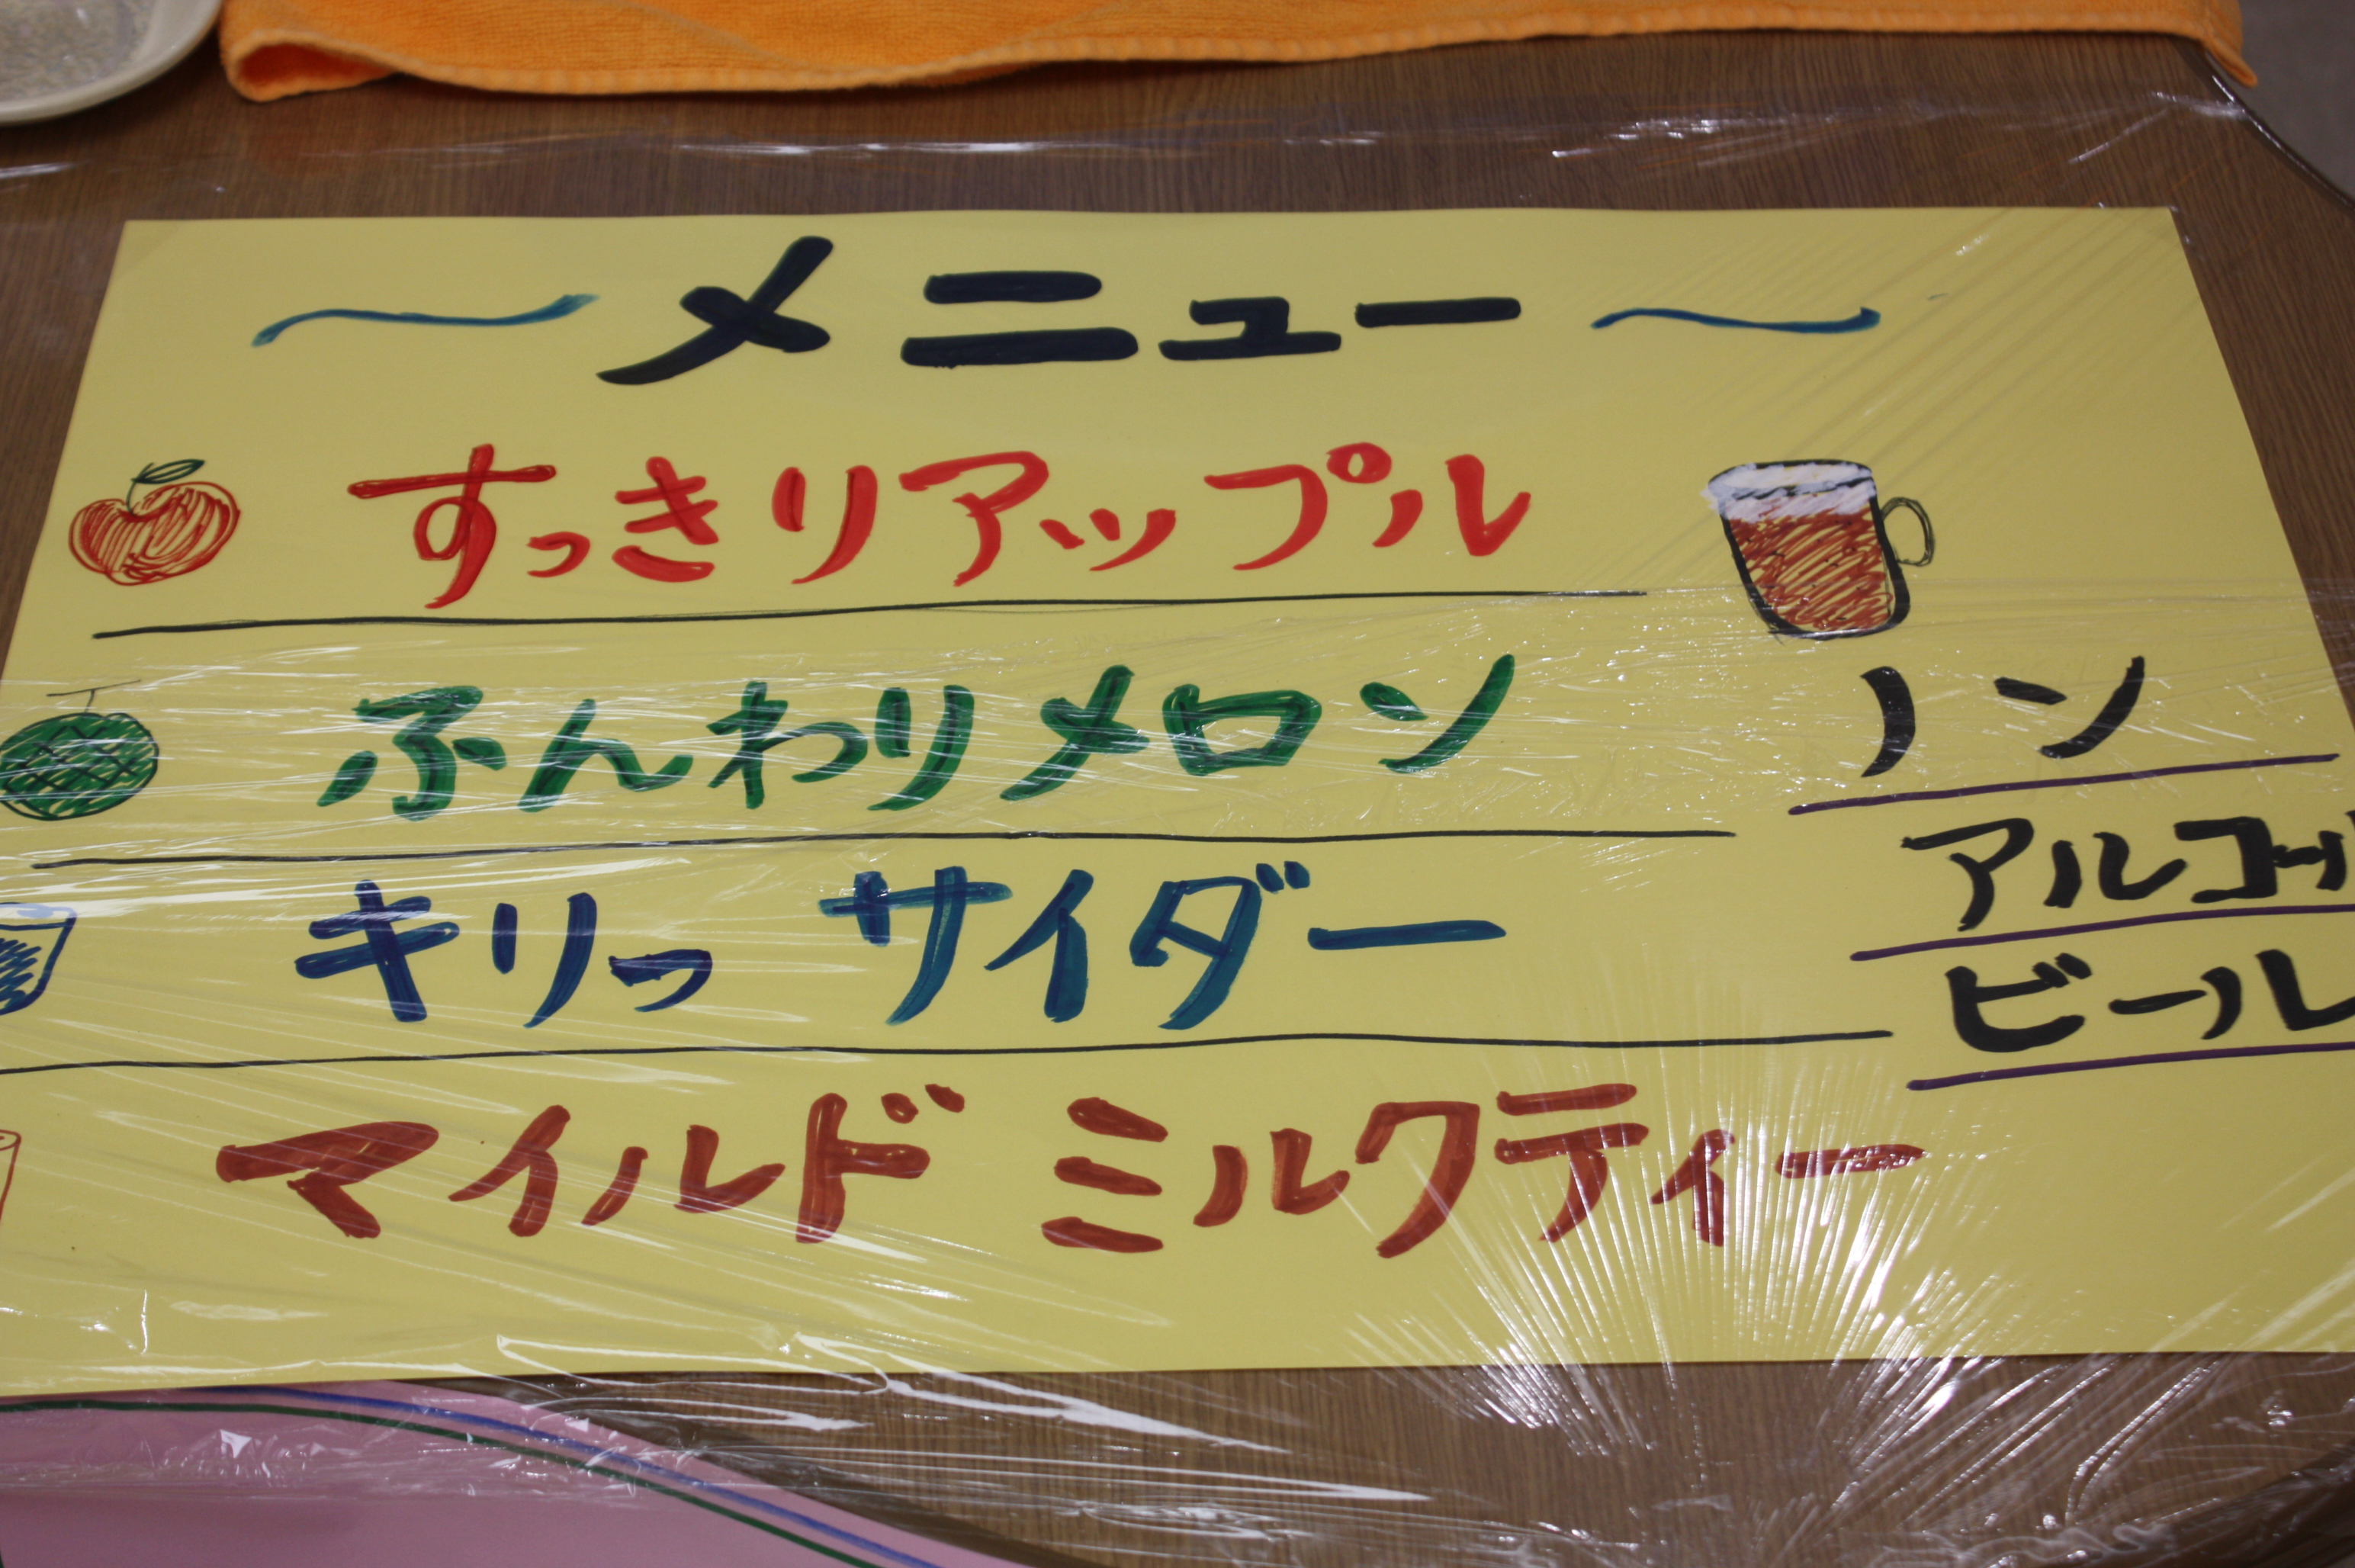 〜メニュー〜
すっきりアップル
ふんわりメロン
キリッ サイダー
マイルド ミルクティー
ノン
アルコール
ビール